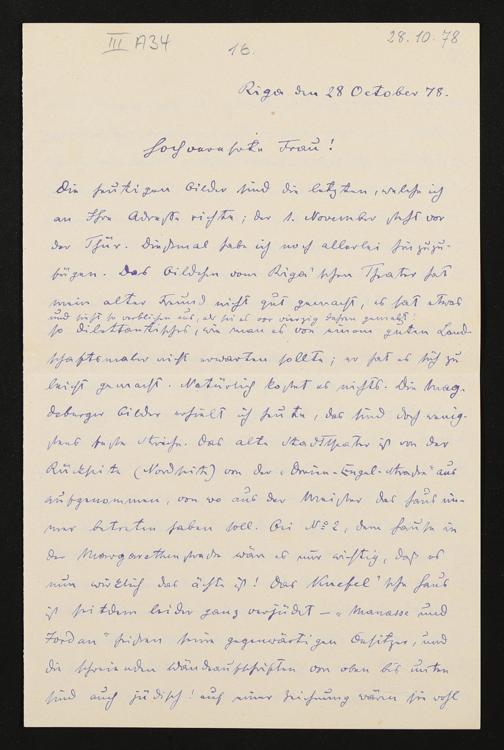 III A34
16.
28.10.78
Riga den 28 October 78.
Hochverehrte Frau!
Die heutigen Bilder sind die letzten, welche ich
an Ihre Adresse richte; der 1. November steht vor
der Thür. Dießmal habe ich noch allerlei hinzuzu-
fügen. Das Bildchen vom Riga'schen Theater hat
mein alter Freund nicht gut gemacht, es hat etwas
und sieht so verblichen aus, als sei es vor vierzig Jahren gemacht!
so dilettantisches, wie man es von einem guten Land-
schaftsmaler nicht erwarten sollte; er hat es sich zu
leicht gemacht. Natürlich kostet es nichts. Die Mag-
deburger Bilder erhielt ich heute, das sind doch wenig-
stens feste Striche. Das alte Stadttheater ist von der
Rückseite (Nordseite) von der "Dreien-Engel-Straße" aus
aufgenommen, von wo aus der Meister das Haus im-
mer betreten haben soll. Bei No 2, dem Hause in
der Margarethenstraße wär es nur wichtig, daß es
nun wirklich das ächte ist! Das Knefel'sche Haus
ist seitdem leider ganz verjüdet – "Manasse und
Jordan" heißen seine gegenwärtigen Besitzer, und
die schreienden Wändeaufschriften von oben bis unten
sind auch jüdisch! auf einer Zeichnung wären sie wohl